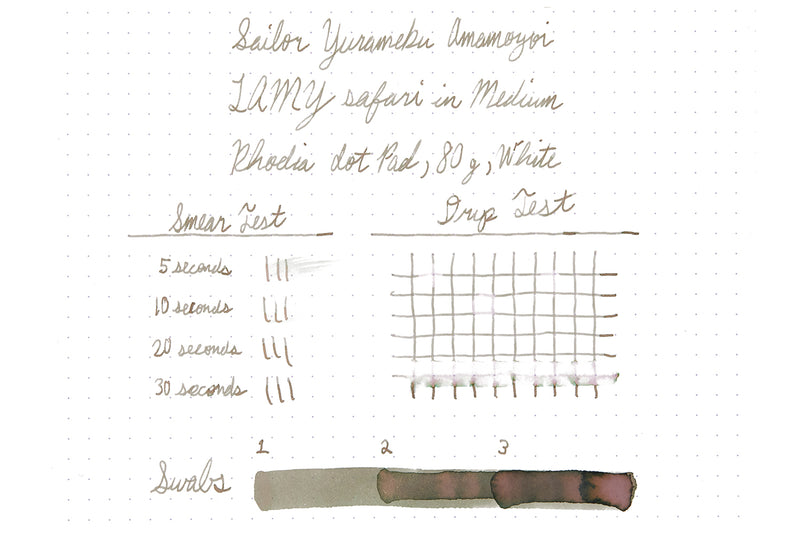 Sailor Yurameku Amamoyoi
LAMY safari in Medium
Rhodia dot Pad, 80 g, White
Smear Test
Drip Test
5 seconds
10 seconds
20 seconds
30 seconds
1 2 3
Swabs